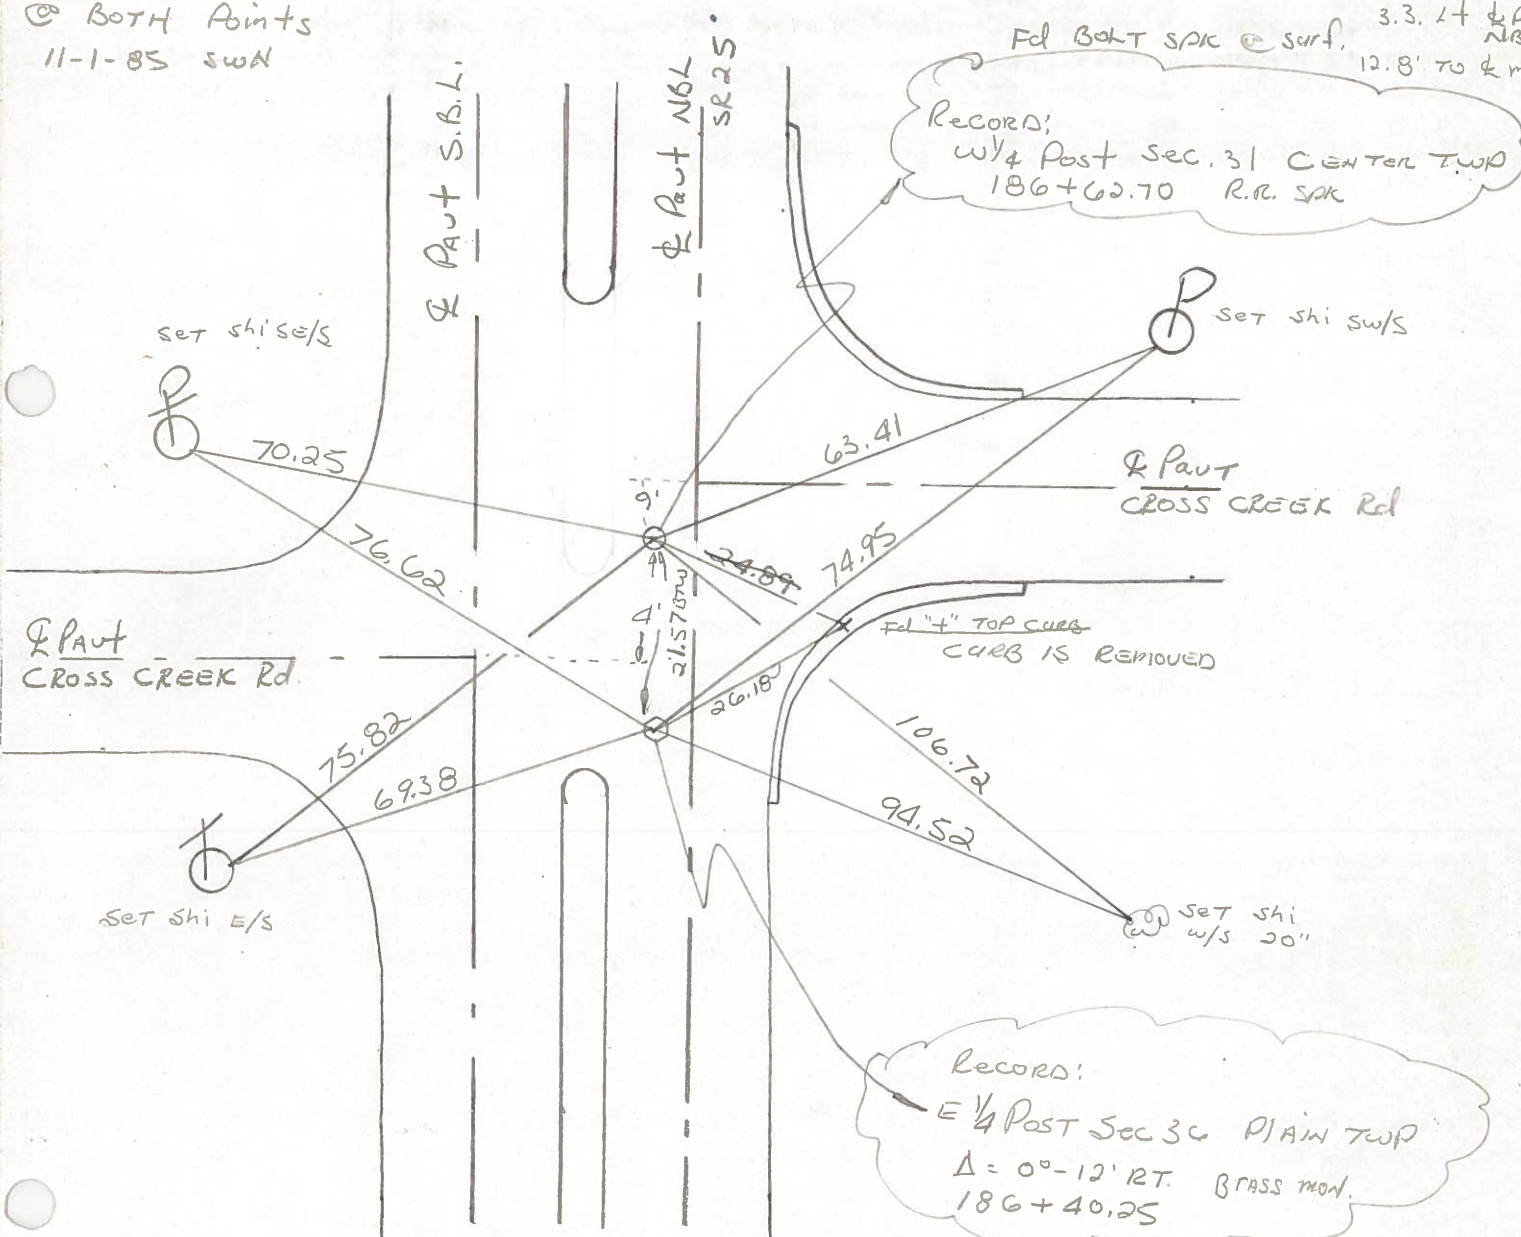 @ BOTH Points
11-1-85 SWN
3.3. Lt ℄
Fd BOLT SPK @ surf.
12.8' TO ℄
℄ PAVT S.B.L.
℄ Pavt NBL
SR 25
RECORD:
W 1/4 Post Sec. 31 CENTER TWP
186+62.70 R.R. SPK
SET Shi SE/S
SET Shi SW/S
70.25
63.41
℄ PAVT
CROSS CREEK Rd
9'
76.62
24.89
74.95
4'
21.57 BTW
Fd "+" TOP CURB
CURB IS REMOVED
℄ PAVT
CROSS CREEK Rd.
26.18
75.82
106.72
69.38
94.52
SET Shi E/S
SET Shi
W/S 20"
RECORD:
E 1/4 POST Sec 36 PLAIN TWP
Δ = 0°-12' RT. BRASS MON.
186+40.25